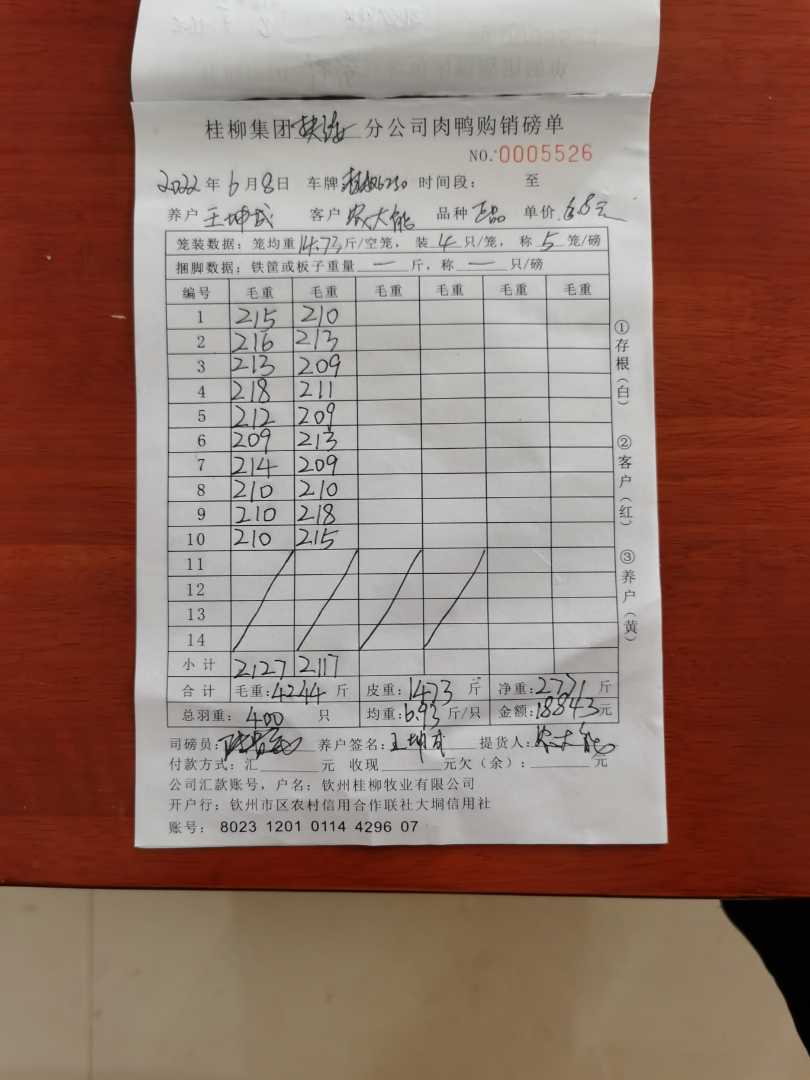 桂柳集团 分公司肉鸭购销磅单
NO. 0005526
2022年6月8日 车牌 时间段： 至
养户 王坤成 客户 农大能 品种 正品 单价 6.8元
笼装数据：笼均重14.73斤/空笼，装4只/笼，称5笼/磅
捆脚数据：铁筐或板子重量一斤，称一只/磅
编号 毛重 毛重 毛重 毛重 毛重 毛重
1 215 210
2 216 213
3 213 209
4 218 211
5 212 209
6 209 213
7 214 209
8 210 210
9 210 218
10 210 215
11
12
13
14
小计 2127 2117
合计 毛重：4244斤 皮重：1473斤 净重：2771斤
总羽重：400只 均重：6.93斤/只 金额：18843元
司磅员： 养户签名：王坤成 提货人：农大能
付款方式：汇 元 收现 元欠（余）： 元
公司汇款账号，户名：钦州桂柳牧业有限公司
开户行：钦州市区农村信用合作联社大垌信用社
账号： 8023 1201 0114 4296 07
①存根（白）
②客户（红）
③养户（黄）